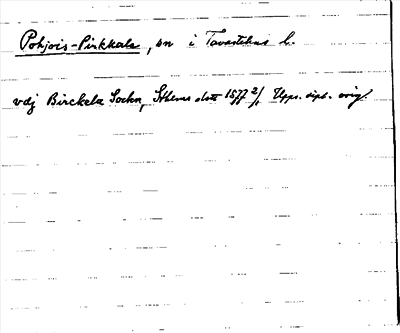 Pohjois-Pirkkala, sn i Tavastehus l.
vdj Birckala Sochn, Sthlms slott 1577 2/1 Upps. dipl. orig.